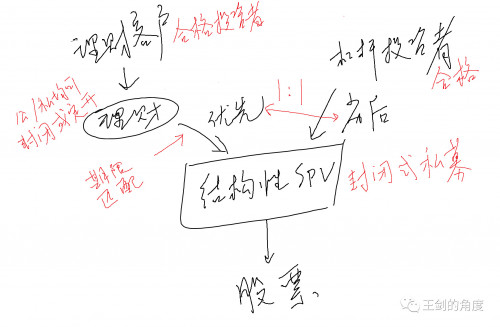 理财客户 合格投资者
杠杆投资者
合格
公/私均可
封闭或定开
理财
优先
1:1
劣后
期限
匹配
结构性SPV
封闭式私募
股票
王剑的角度